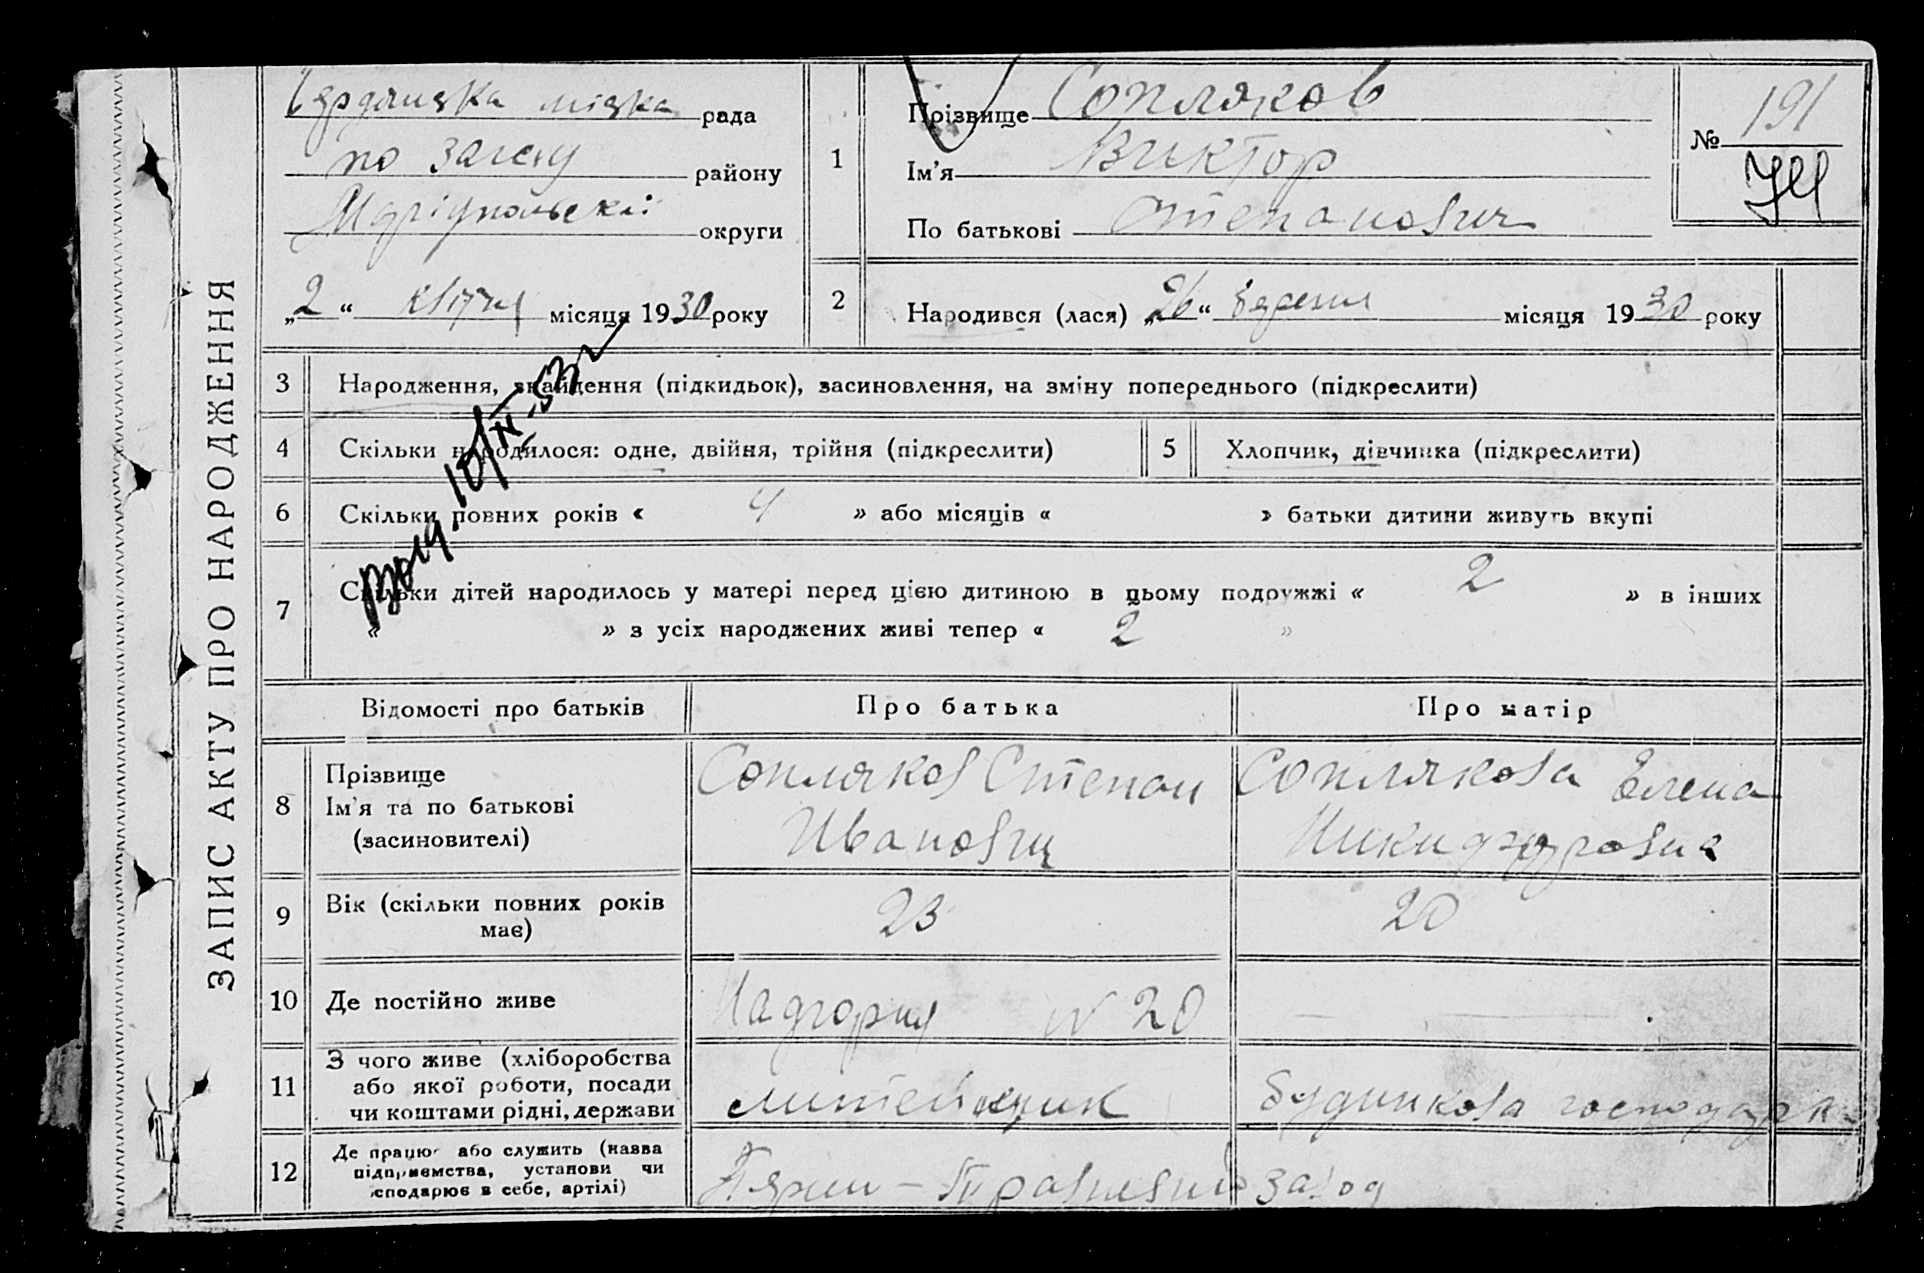 ЗАПИС АКТУ ПРО НАРОДЖЕННЯ
міська рада
по загсу району
Маріупольскої округи
„2“ квітня місяця 1930 року
1
Прізвище Сопляков
Ім'я Виктор
По батькові Степанович
№ 191
2
Народився (лася) „26“ березня місяця 1930 року
3 Народження, знайдення (підкидьок), засиновлення, на зміну попереднього (підкреслити)
4 Скільки народилося: одне, двійня, трійня (підкреслити)
5 Хлопчик, дівчинка (підкреслити)
6 Скільки повних років « 4 » або місяців « » батьки дитини живуть вкупі
7 Скільки дітей народилось у матері перед цією дитиною в цьому подружжі « 2 » в інших
« » з усіх народжених живі тепер « 2 »
Відомості про батьків Про батька Про матір
8
Прізвище
Ім'я та по батькові
(засиновителі)
Сопляков Степан
Иванович
Соплякова Елена
9
Вік (скільки повних років
має)
23
20
10 Де постійно живе
Надгорная N 20
11
З чого живе (хліборобства
або якої роботи, посади
чи коштами рідні, держави
литейщик
будинкова господарка
12
Де працює або служить (назва
підприємства, установи чи
господарює в себе, артілі)
завод
10/IV-53 г